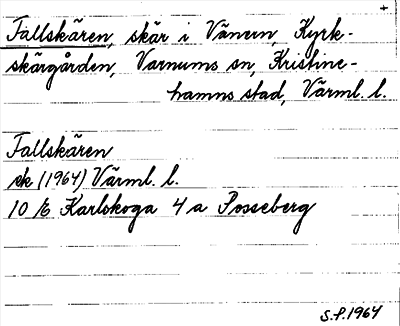 +
Fallskären, skär i Vänern, Kyrk-
skärgården, Varnums sn, Kristine-
hamns stad, Värml. l.
Fallskären
ek (1964) Värml. l.
10 E Karlskoga 4 a Posseberg
S.P. 1964